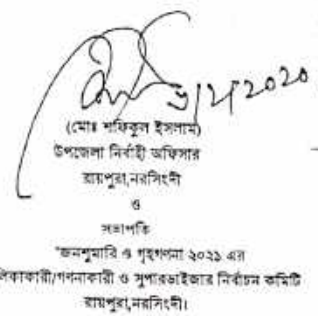 ৩/৮/২০২০
(মোঃ শফিকুল ইসলাম)
উপজেলা নির্বাহী অফিসার
রায়পুরা,নরসিংদী
ও
সভাপতি
"জনশুমারি ও গৃহগণনা ২০২১ এর
লিকাকারী/গণনাকারী ও সুপারভাইজার নির্বাচন কমিটি
রায়পুরা,নরসিংদী।